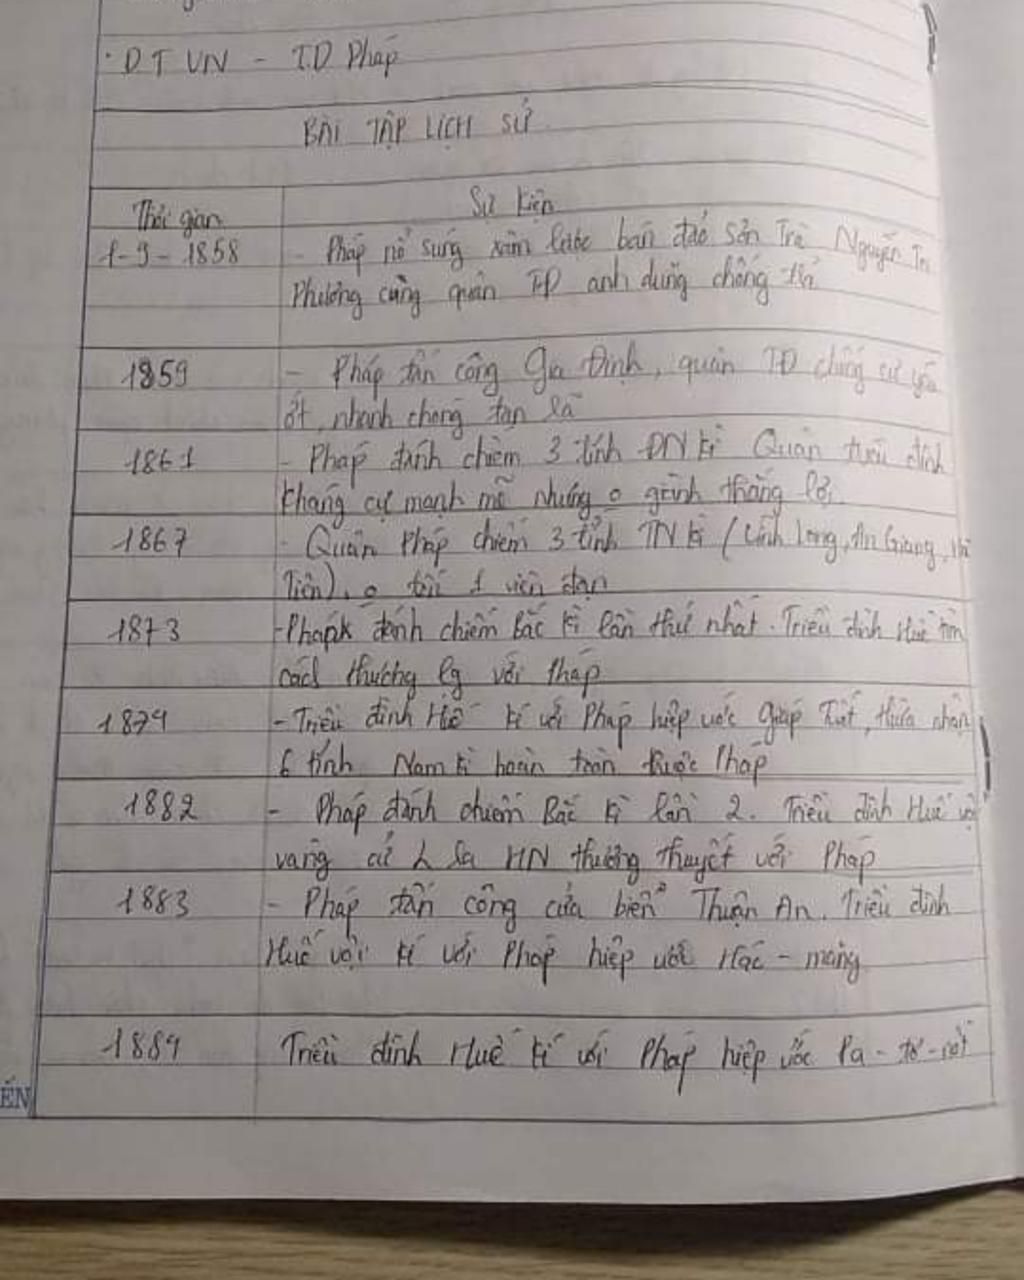 · DT VN - TD Pháp
BÀI TẬP LỊCH SỬ
Thời gian
Sự kiện
1-9-1858
- Pháp nổ súng xâm lược bán đảo Sơn Trà Nguyễn Tri
Phương cùng quân TĐ anh dũng chống trả
1859
- Pháp tấn công Gia Định, quân TĐ chống cự yếu
ớt, nhanh chóng tan rã
1861
- Pháp đánh chiếm 3 tỉnh ĐN kì Quân triều đình
kháng cự mạnh mẽ nhưng o giành thắng lợi
1867
- Quân Pháp chiếm 3 tỉnh TN kì (Vĩnh Long, An Giang, Hà
Tiên), o tốn 1 viên đạn
1873
- Phapk đánh chiếm Bắc kì lần thứ nhất. Triều đình Huế tìm
cách thương lg với Pháp
1874
- Triều đình Huế kí với Pháp hiệp ước Giáp Tuất, thừa nhận
6 tỉnh Nam kì hoàn toàn thuộc Pháp
1882
- Pháp đánh chiếm Bắc kì lần 2. Triều đình Huế vội
vàng cử ra HN thương thuyết với Pháp
1883
- Pháp tấn công cửa biển Thuận An. Triều đình
Huế vội kí với Pháp hiệp ước Hác - măng
1884
Triều đình Huế kí với Pháp hiệp ước Pa - tơ - nốt
ẾN